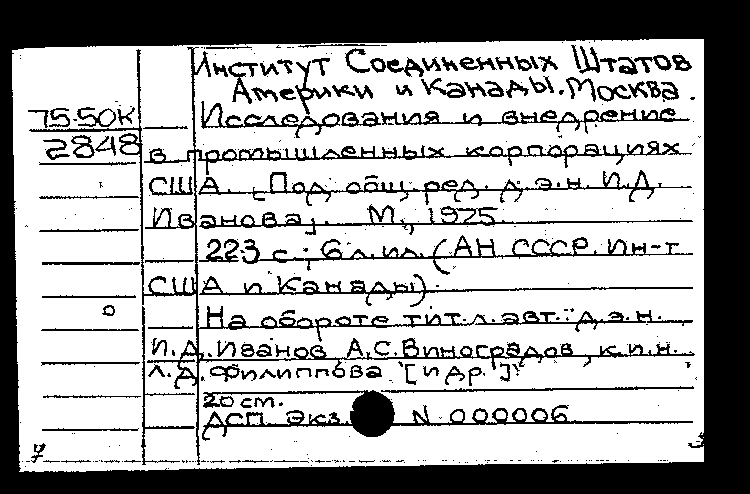 Институт Соединенных Штатов
Америки и Канады. Москва.
75-50К
Исследования и внедрение
2848
в промышленных корпорациях
США. [Под общ. ред. д.э.н. И.Д.
Иванова]. М., 1975.
223 с.; 6 л. ил. (АН СССР. Ин-т
США и Канады).
На обороте тит. л. авт.: д.э.н.
И.Д. Иванов, А.С. Виноградов, к.и.н.
Л.Д. Филиппова [и др.]
20 см.
ДСП. Экз. N 000006
7